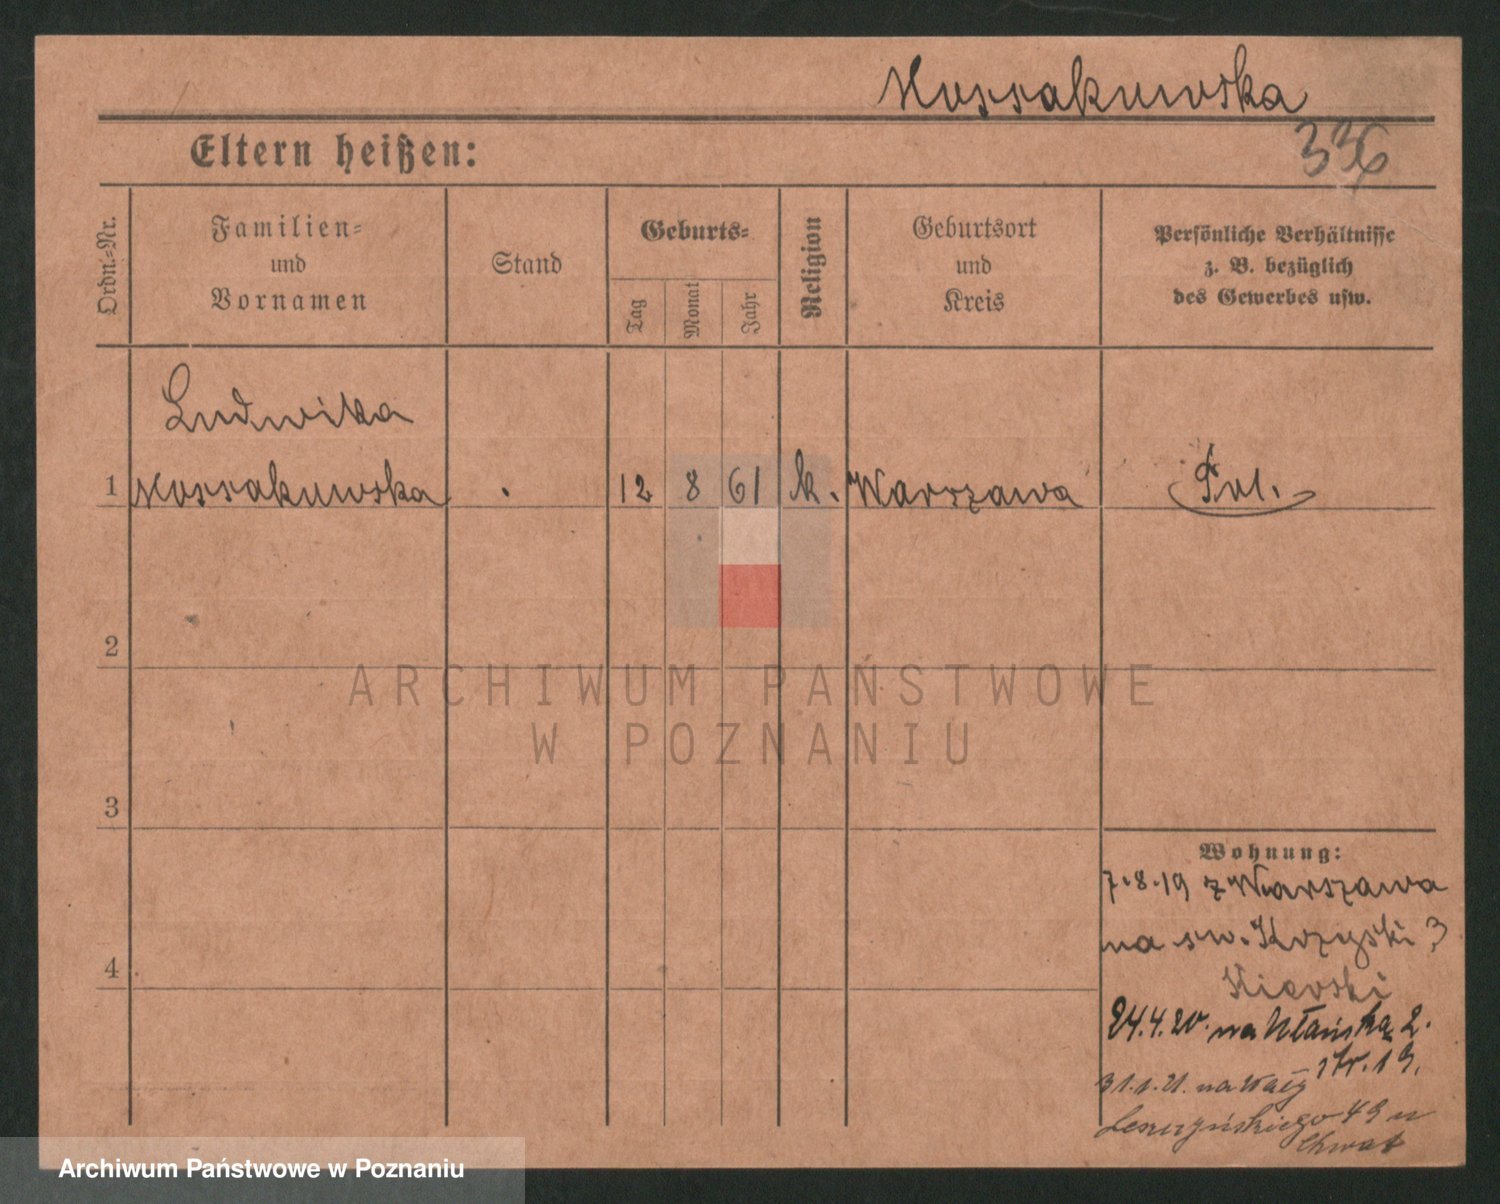 Kossakowska
336
Eltern heißen:
Ordn.-Nr.
Familien-
und
Vornamen
Stand
Geburts-
Tag
Monat
Jahr
Religion
Geburtsort
und
Kreis
Persönliche Verhältnisse
z. B. bezüglich
des Gewerbes usw.
Ludwika
1 Kossakowska . 12 8 61 k. Warszawa Pol.
2
ARCHIWUM PAŃSTWOWE
W POZNANIU
3
Wohnung:
7.8.19 z Warszawa
na św. 3
4
24.4.20. na Ułańska 2.
str. 19.
31.1.21. na Wały
Leszczyńskiego 49 u
Chwat
Archiwum Państwowe w Poznaniu